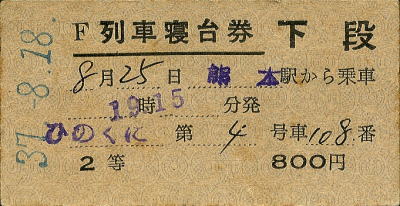 37.-8.18.
F列車寝台券 下段
8月25日 熊本駅から乗車
19時15分発
ひのくに 第4号車108番
2等 800円